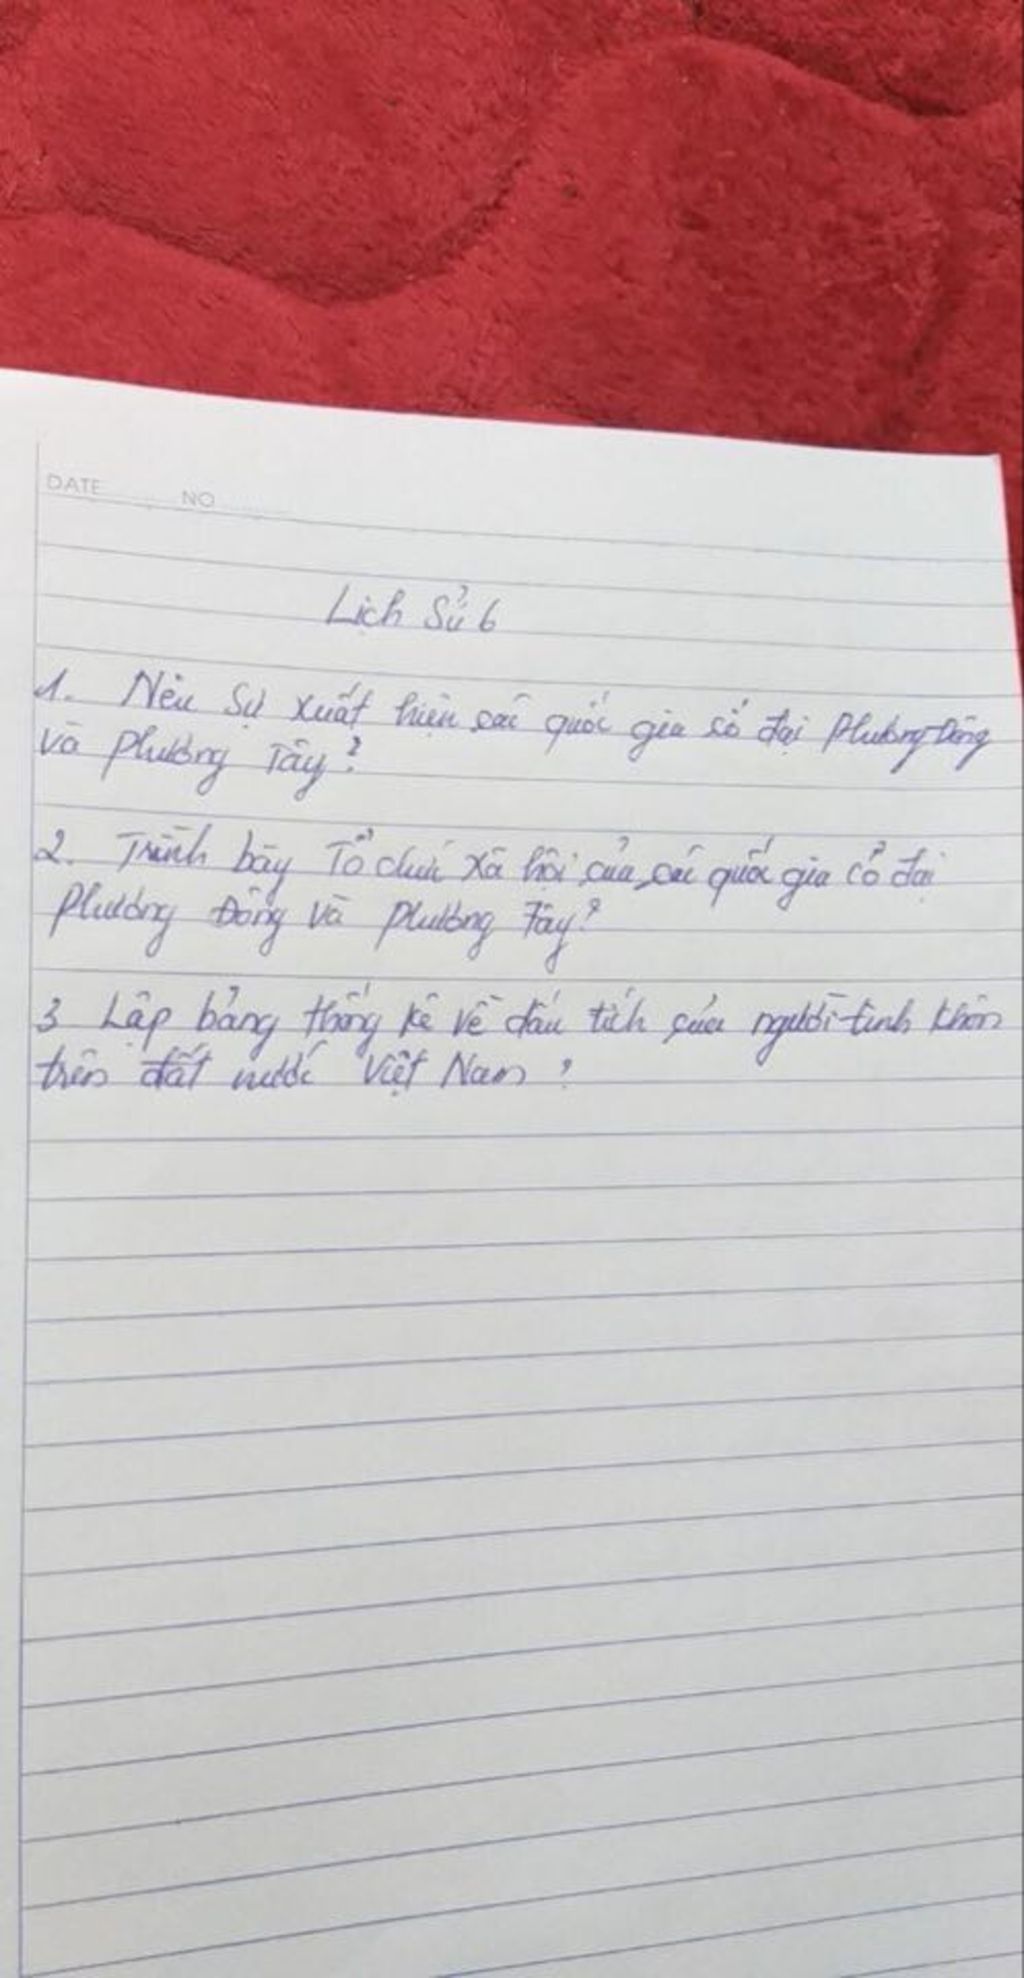 DATE NO
Lịch Sử 6
1. Nêu Sự xuất hiện các quốc gia cổ đại Phương Đông
và Phương Tây?
2. Trình bày Tổ chức xã hội của các quốc gia cổ đại
Phương Đông và Phương Tây?
3 Lập bảng thống kê về dấu tích của người tinh khôn
trên đất nước Việt Nam?